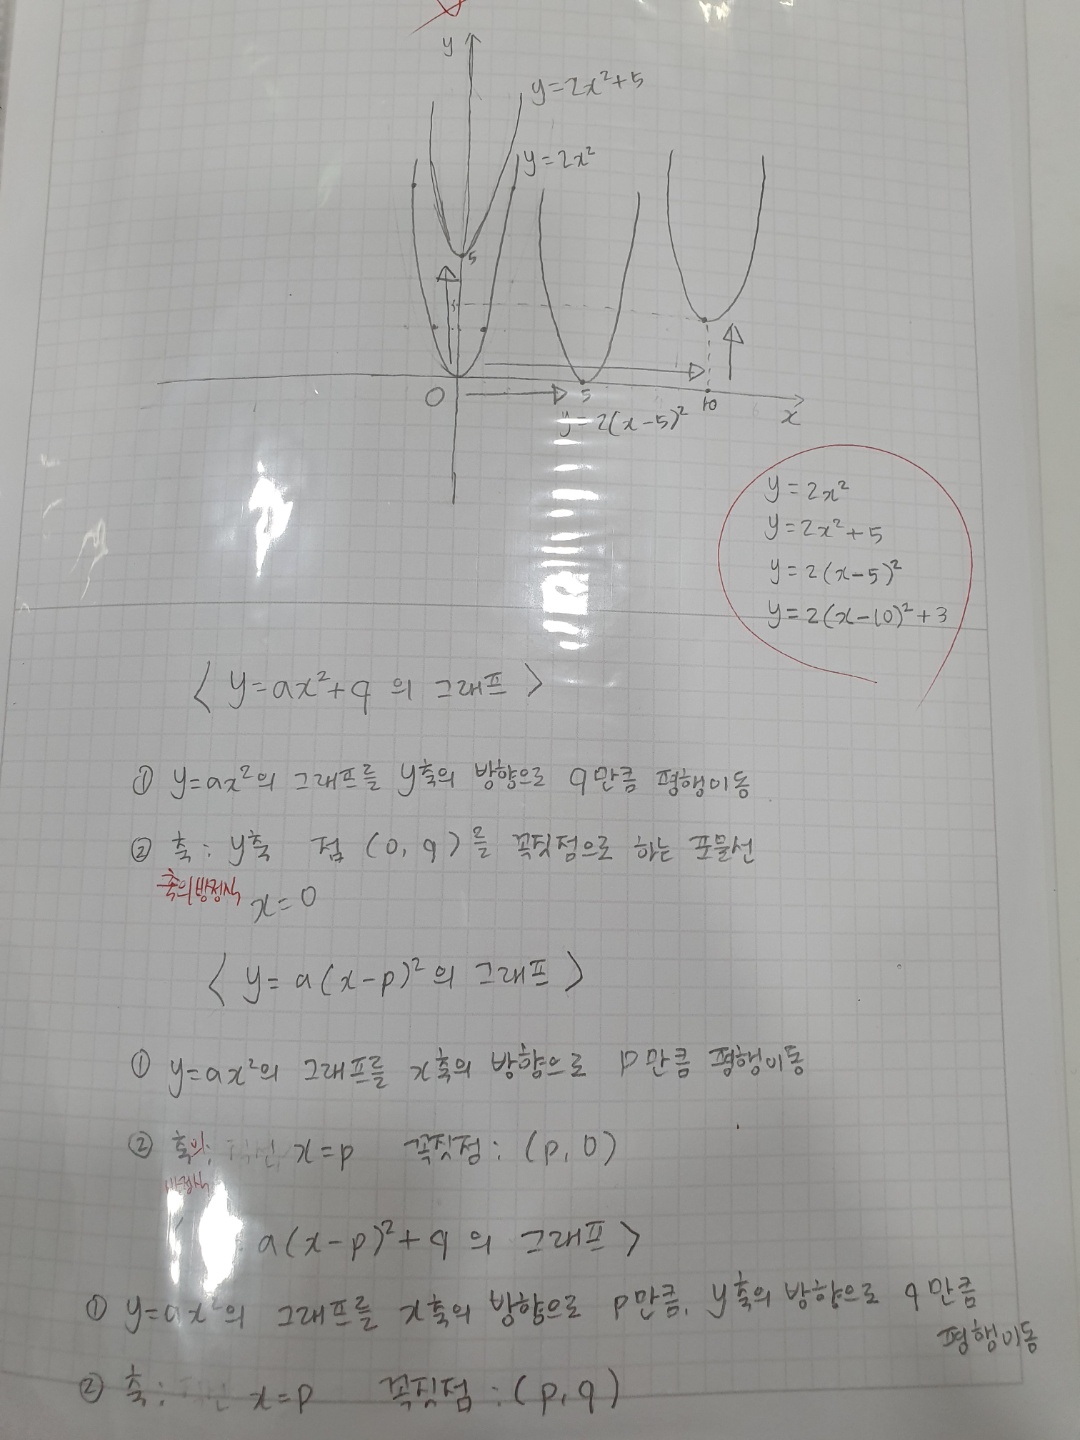 y
y=2x²+5
y=2x²
5
3
O
5
10
x
y=2(x-5)²
y=2x²
y=2x²+5
y=2(x-5)²
y=2(x-10)²+3
< y=ax²+q 의 그래프 >
① y=ax²의 그래프를 y축의 방향으로 q만큼 평행이동
② 축: y축 점 (0, q)를 꼭짓점으로 하는 포물선
축의방정식 x=0
< y= a(x-p)² 의 그래프 >
① y=ax²의 그래프를 x축의 방향으로 p만큼 평행이동
② 축의: x=p 꼭짓점: (p, 0)
방정식
a(x-p)²+q 의 그래프 >
① y=ax²의 그래프를 x축의 방향으로 p만큼, y축의 방향으로 q만큼
평행이동
② 축: x=p 꼭짓점: (p, q)